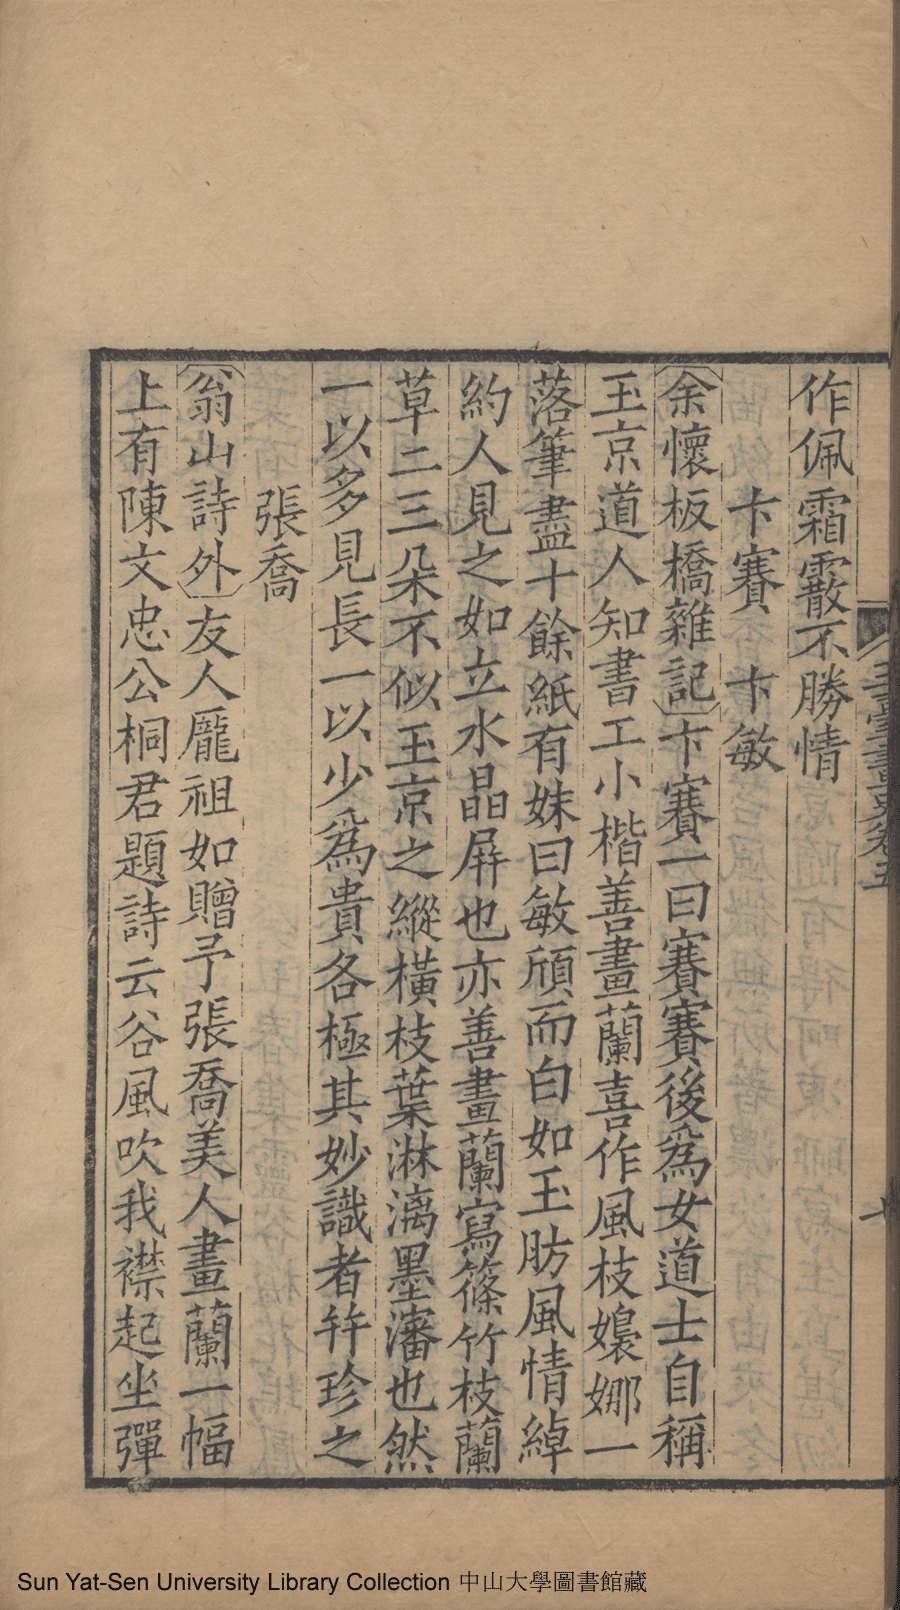 作佩霜霰不勝情
卞賽　卞敏
余懷板橋雜記卞賽一曰賽賽後爲女道士自稱
玉京道人知書工小楷善畫蘭喜作風枝嬝娜一
落筆盡十餘紙有妹曰敏頎而白如玉肪風情綽
約人見之如立水晶屏也亦善畫蘭寫篠竹枝蘭
草二三朵不似玉京之縱橫枝葉淋漓墨瀋也然
一以多見長一以少爲貴各極其妙識者竝珍之
張喬
翁山詩外友人龎祖如贈予張喬美人畫蘭一幅
上有陳文忠公桐君題詩云谷風吹我襟起坐彈
Sun Yat-Sen University Library Collection 中山大學圖書館藏